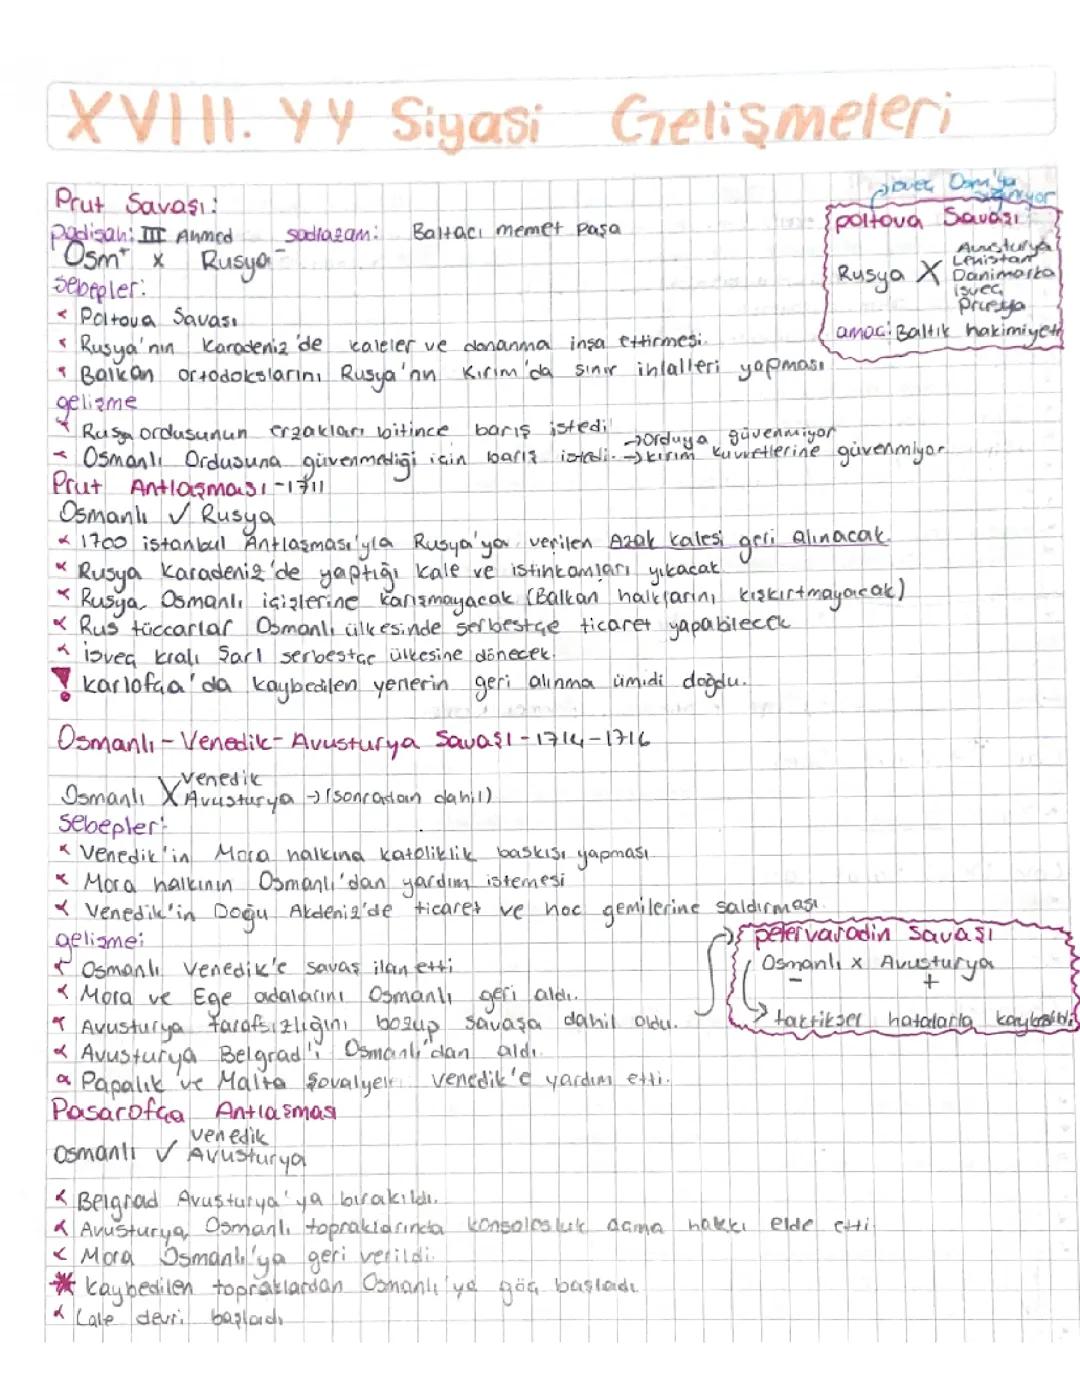 XVIII. YY Siyasi Gelişmeleri
Prut Savaşı:
padişah: III Ahmed sadrazam: Baltacı memet Paşa
Osm⁺ x Rusya⁻
sebepler:
Poltova Savaşı
Rusya'nın Karadeniz'de kaleler ve donanma inşa ettirmesi.
Balkan ortodokslarını Rusya'nın Kırım'da sınır ihlalleri yapması
isveç Osm'ya sığınıyor
poltova Savaşı
Rusya X Avusturya
Lehistan
Danimarka
isveç
Prusya
amaç: Baltık hakimiyeti
gelişme
Rusya ordusunun erzakları bitince barış istedi
Osmanlı Ordusuna güvenmediği için barış istedi. →Orduya güvenmiyor
→kırım kuvvetlerine güvenmiyor.
Prut Antlaşması-1711
Osmanlı ✓ Rusya
1700 istanbul Antlaşması'yla Rusya'ya verilen Azak kalesi geri alınacak.
Rusya Karadeniz'de yaptığı kale ve istihkamları yıkacak.
Rusya Osmanlı içişlerine karışmayacak (Balkan halklarını kışkırtmayacak)
Rus tüccarlar Osmanlı ülkesinde serbestçe ticaret yapabilecek
isveç kralı Şarl serbestçe ülkesine dönecek.
! karlofça'da kaybedilen yenerin geri alınma ümidi doğdu.
Osmanlı-Venedik-Avusturya Savaşı-1714-1716
Osmanlı X Venedik
Avusturya → (sonradan dahil)
sebepler:
Venedik'in Mora halkına katoliklik baskısı yapması
Mora halkının Osmanlı'dan yardım istemesi
Venedik'in Doğu Akdeniz'de ticaret ve hac gemilerine saldırması.
gelişme:
Osmanlı Venedik'e savaş ilan etti
Mora ve Ege adalarını Osmanlı geri aldı.
Avusturya tarafsızlığını bozup savaşa dahil oldu.
petervaradin savaşı
Osmanlı x Avusturya
- +
→ taktiksel hatalarla kaybedildi
Avusturya Belgrad'ı Osmanlı'dan aldı.
Papalık ve Malta Şovalyeleri venedik'e yardım etti.
Pasarofça Antlaşması
Osmanlı ✓ venedik
Avusturya
Belgrad Avusturya'ya bırakıldı.
Avusturya, Osmanlı topraklarında konsolosluk açma hakkı elde etti
Mora Osmanlı'ya geri verildi.
* kaybedilen topraklardan Osmanlı'ya göç başladı
Lale devri başladı